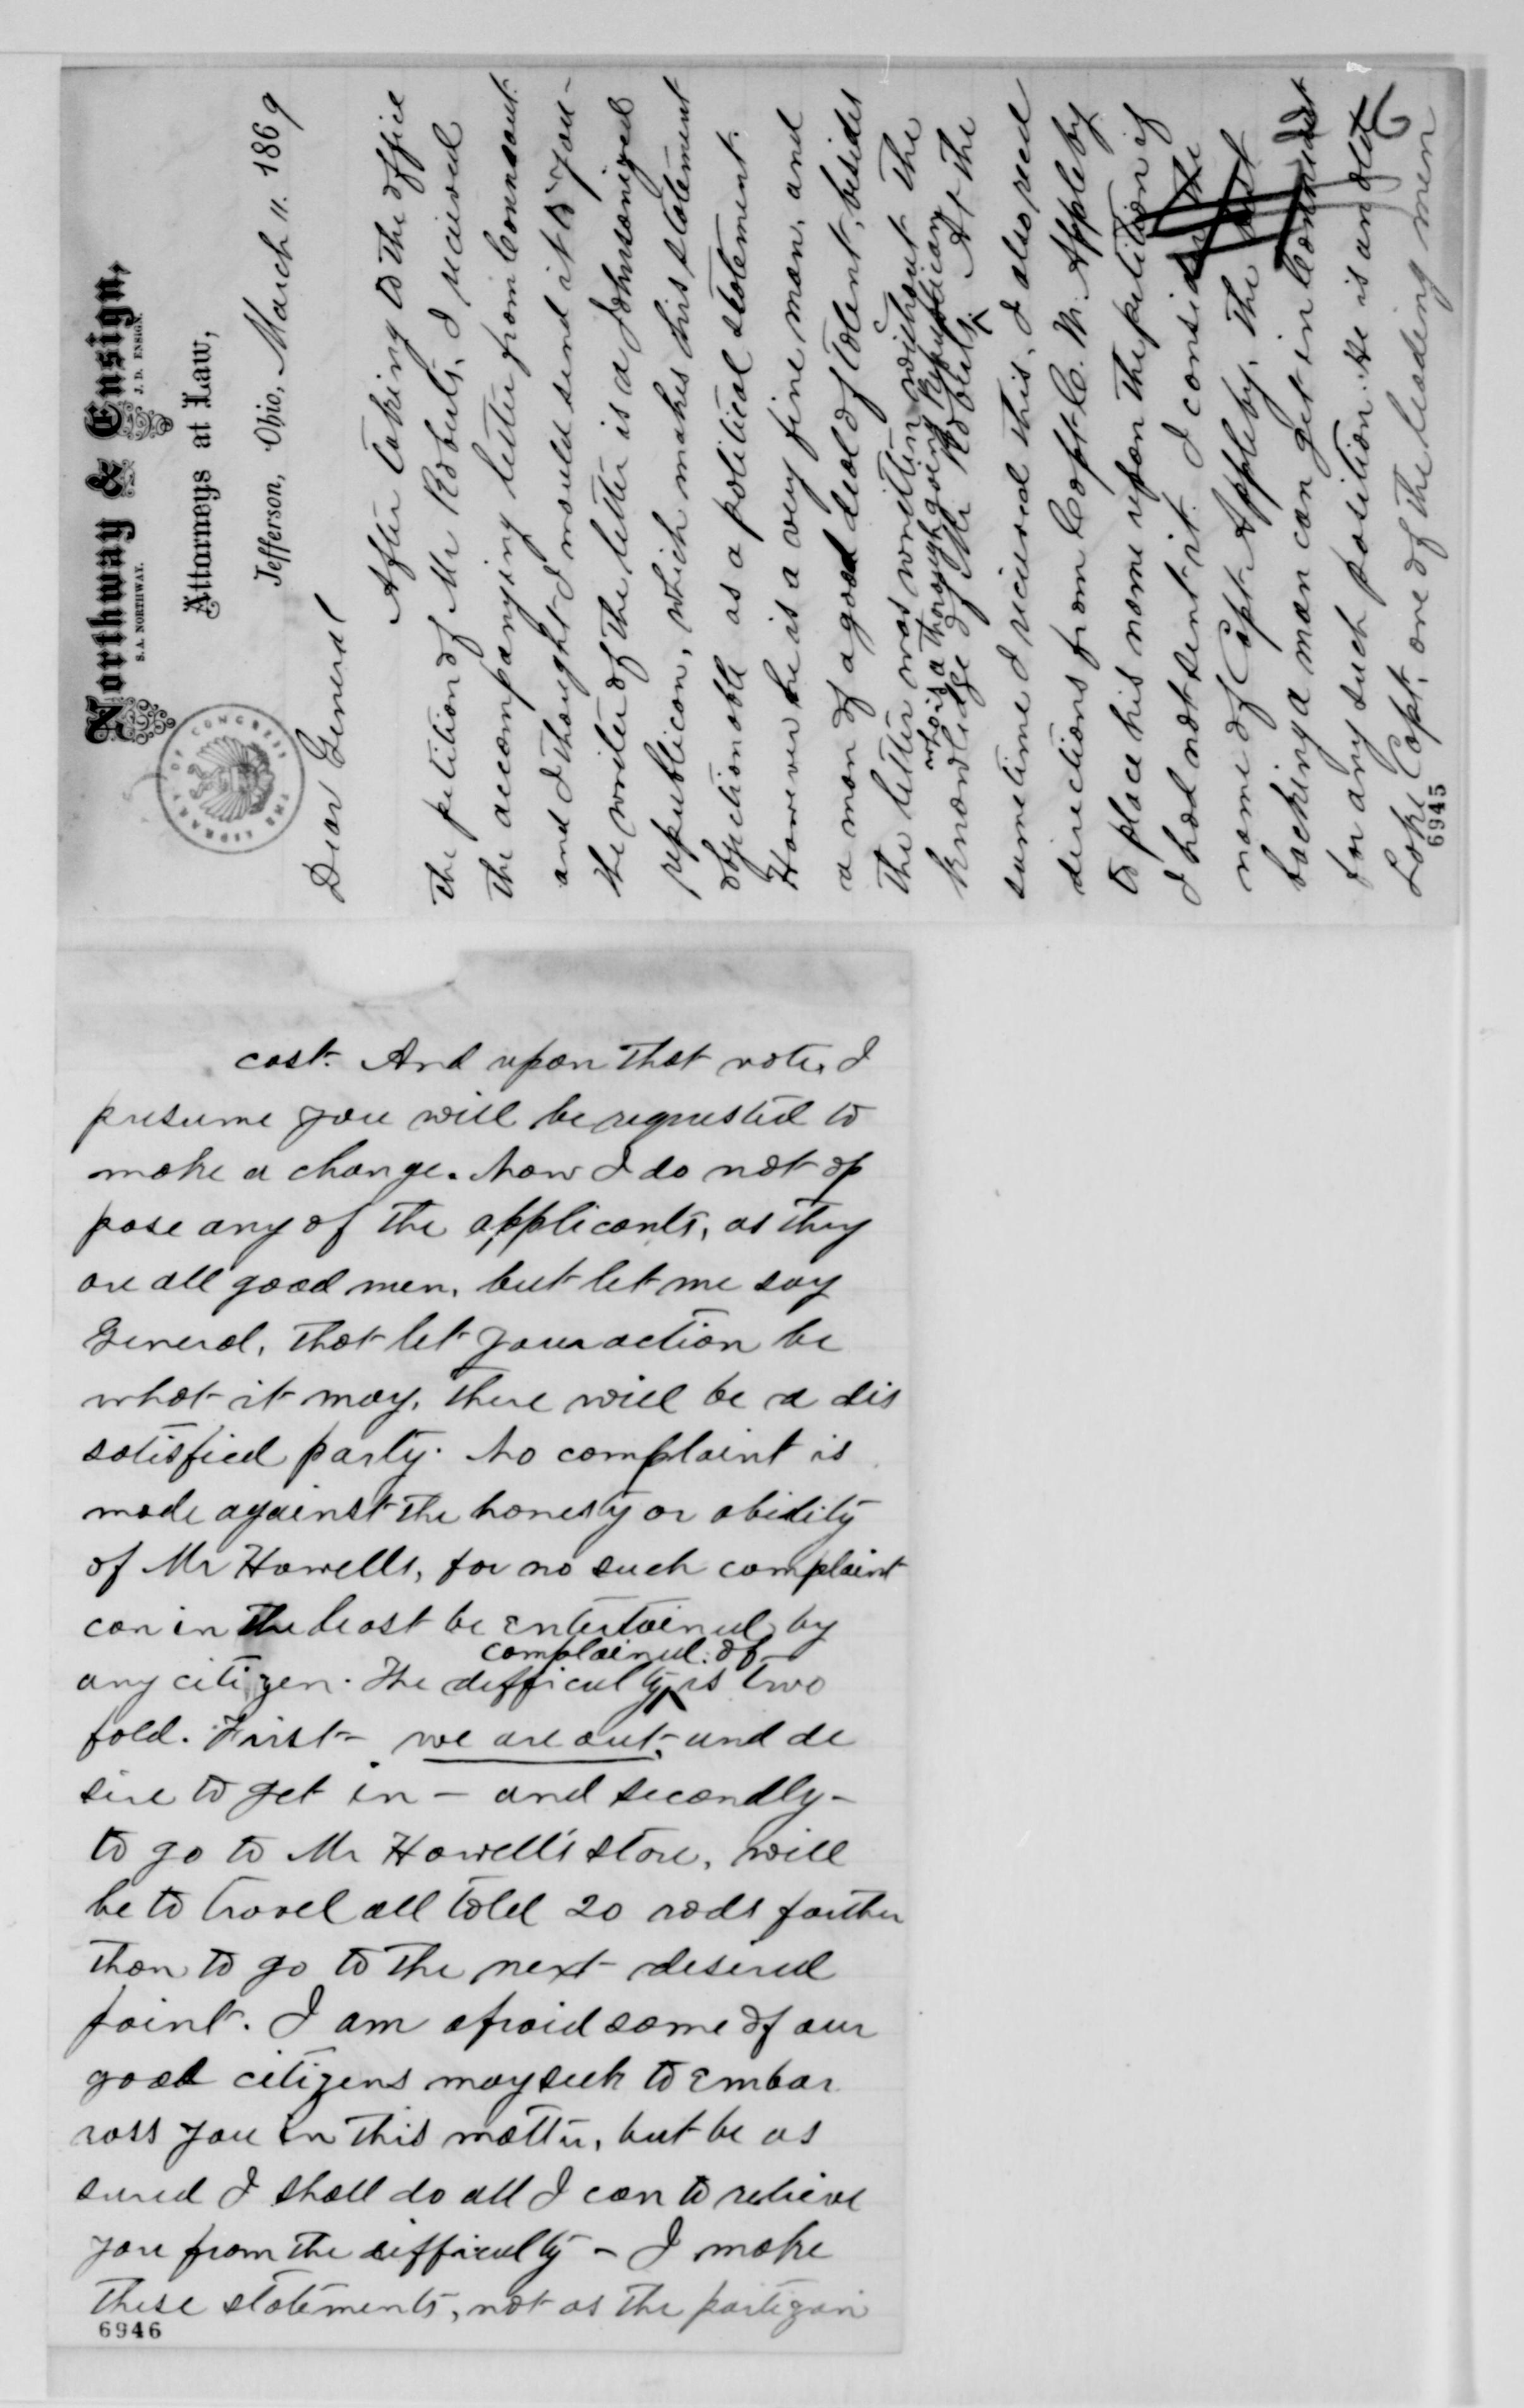 Northway & Ensign,
S. A. NORTHWAY. J. D. ENSIGN.
Attorneys at Law,
Jefferson, Ohio, March 11. 1869
THE LIBRARY OF CONGRESS
Dear General
After taking to the office
the petition of Mr Roberts, I received
the accompanying letter from Conneaut
and I thought I would send it to you–
the writer of the letter is a Johnsonized
republican, which makes his statement
objectionable as a political statement.
However he is a very fine man, and
a man of a good deal of talent, besides
the letter was written without the
who is a thorough going Republican
knowledge of Mr Roberts. At the
same time I received this, I also recd
directions from Capt C. W. Appleby
to place his name upon the petition if
I had not sent it. I consider the
name of Capt Appleby, the best
backing a man can get in Conneaut
for any such position. He is an old
Lake Capt, one of the leading men
6945
cast. And upon that vote, I
presume you will be requested to
make a change. Now I do not op
pose any of the applicants, as they
are all good men, but let me say
General, that let your action be
what it may, there will be a dis
satisfied party. No complaint is
made against the honesty or ability
of Mr Howells, for no such complaint
can in the least be entertained by
complained of
any citizen. The difficulty is two
fold. First– we are out, and de
sire to get in – and secondly–
to go to Mr Howell's store, will
be to travel all told 20 rods farther
than to go to the next desired
point. I am afraid some of our
good citizens may seek to embar
rass you in this matter, but be as
sured I shall do all I can to relieve
you from the difficulty – I make
these statements, not as the partizan
6946